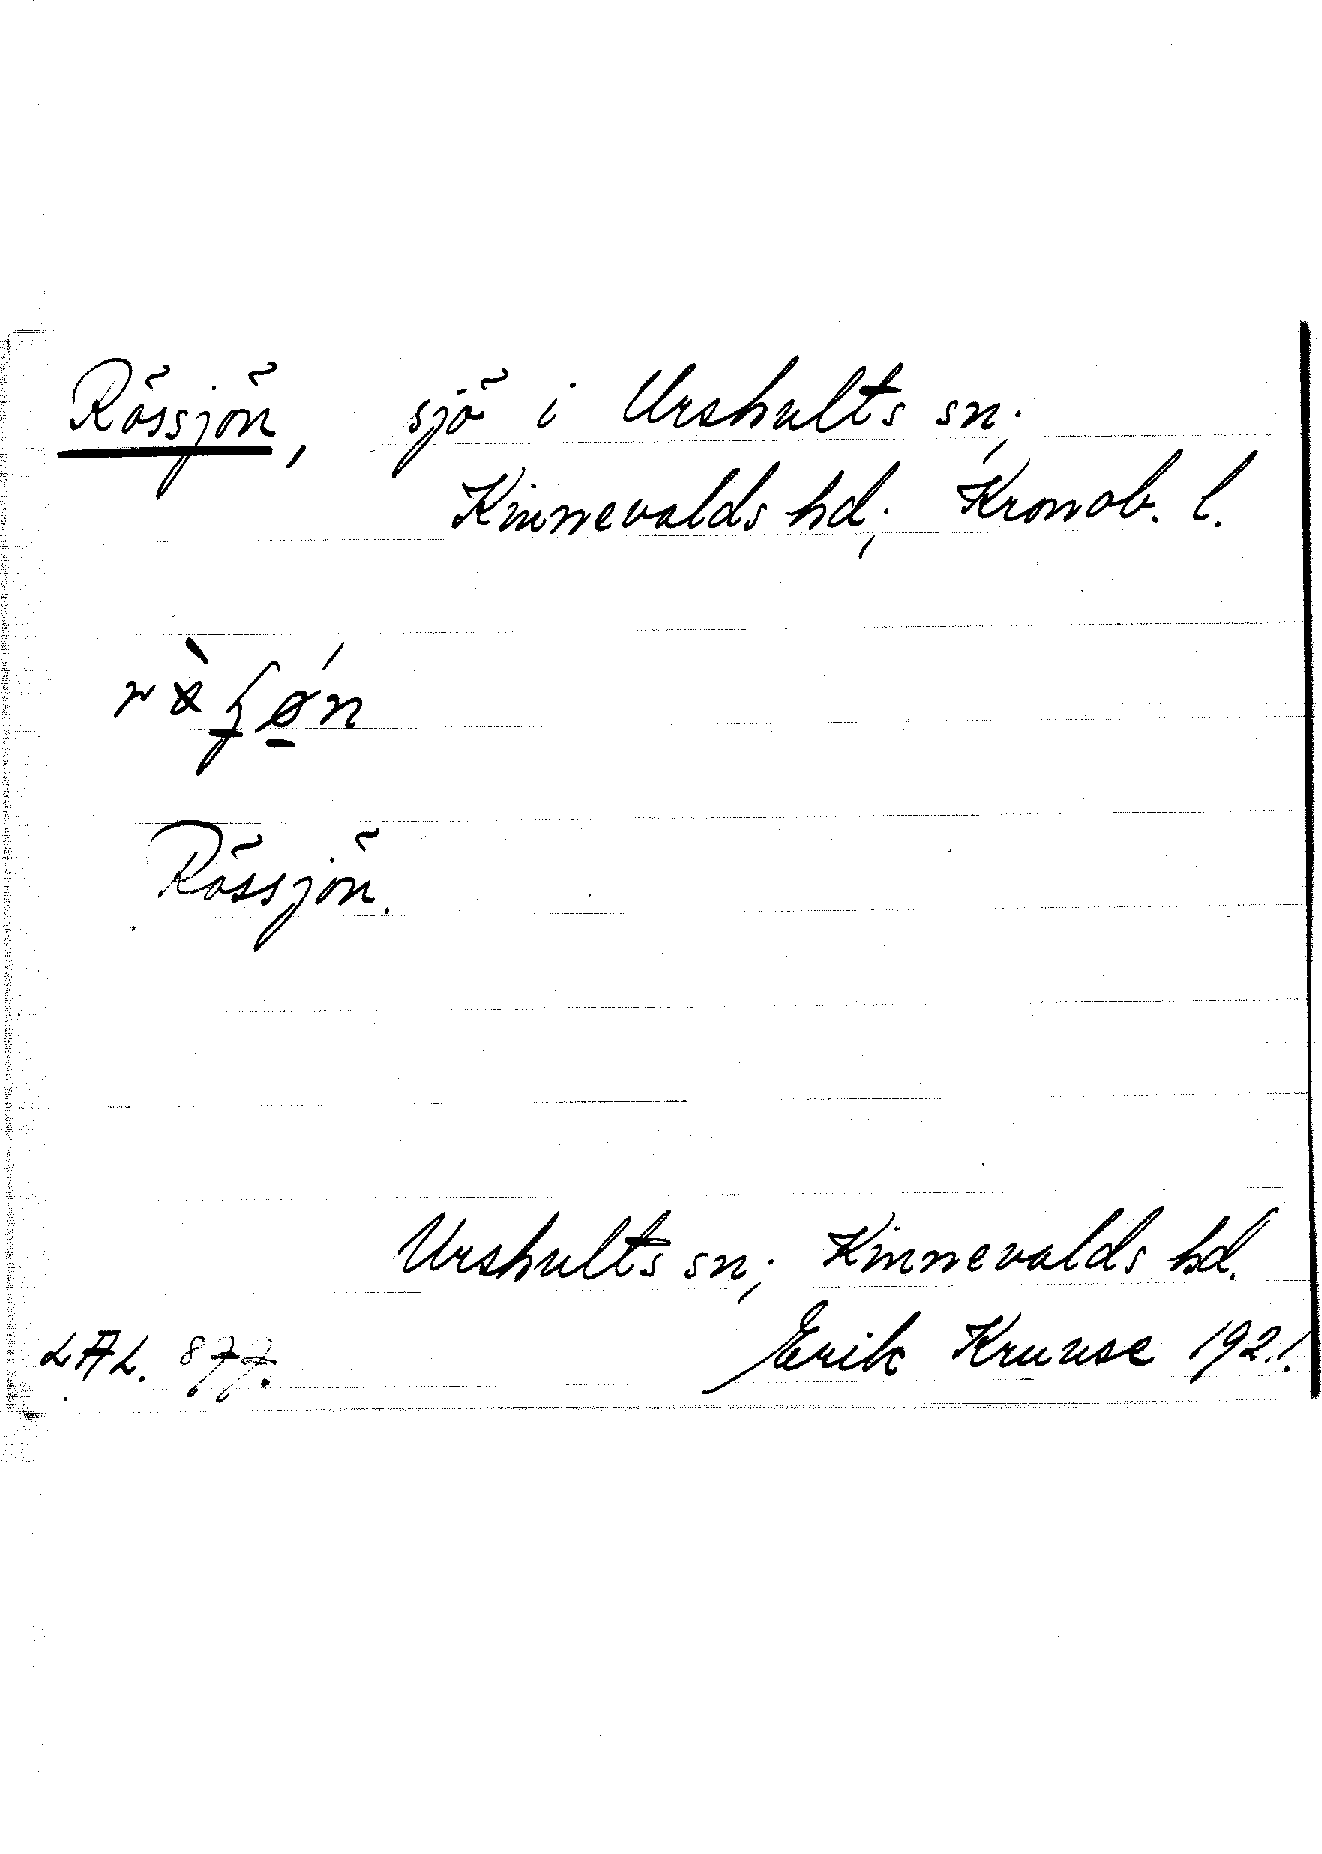 Rössjön, sjö i Urshults sn;
Kinnevalds hd; Kronob. l.
Rössjön.
Urshults sn; Kinnevalds hd.
Erik Kruuse 1921.
LAL. 877.